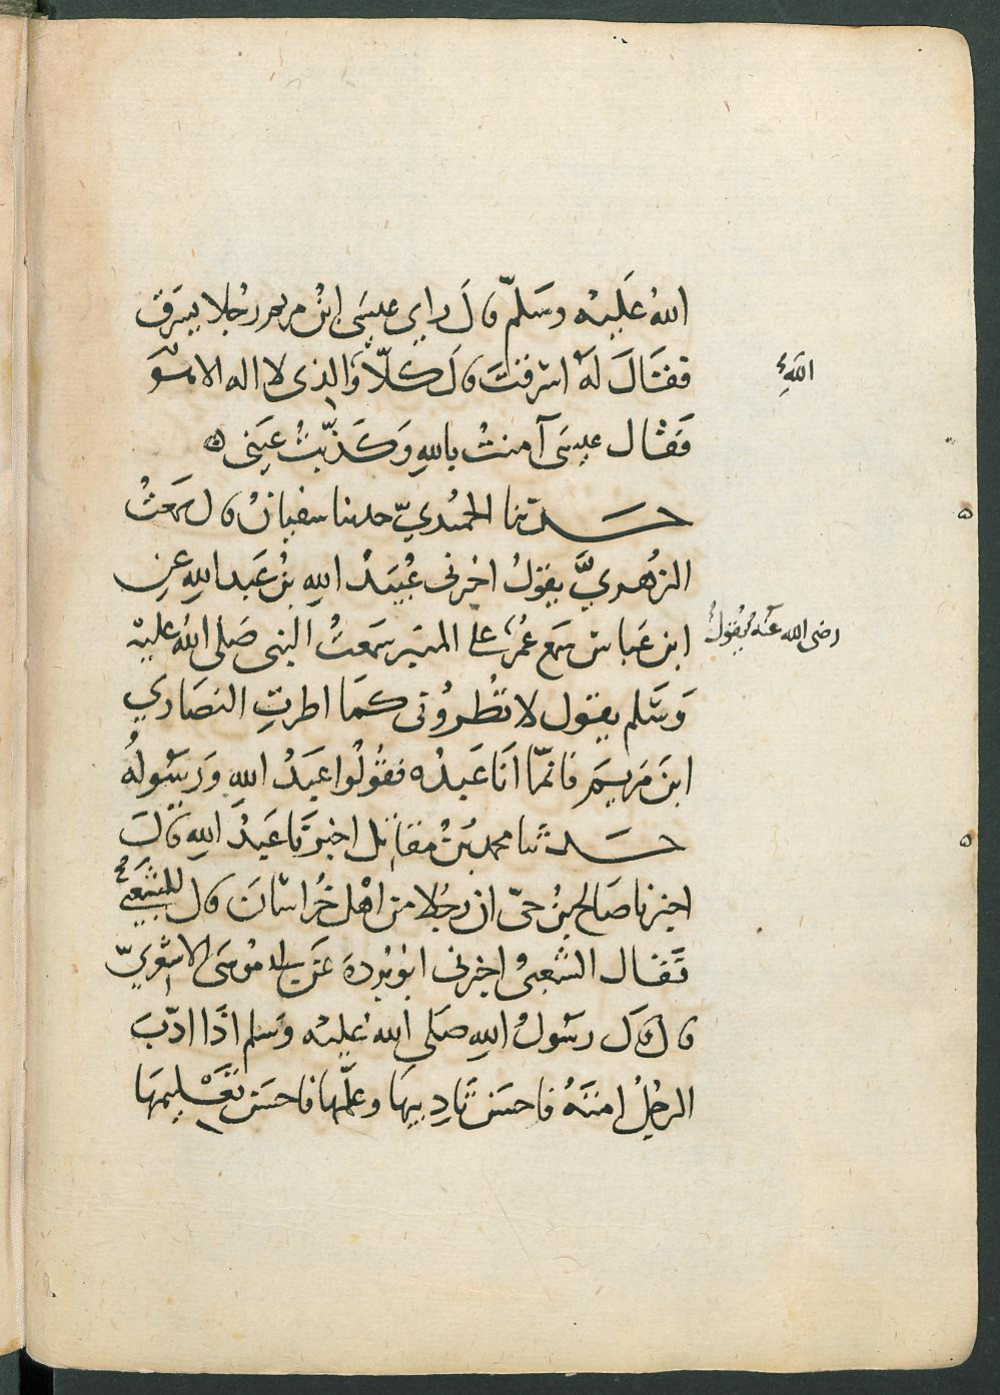 اللهُ عَلَيْه وسَلّم قالَ راي عيسَى ابْن مريم رجُلا يسَرق
فقَالَ لَهُ اسَرقتَ قالَ كلّا وَالذي لا اله الا هُوَ
اللهِ
فَقال عيسَى آمنتُ باللهِ وَكَذّبتُ عَيني
حدثنا الحميُديّ حدثنا سفيانُ قال سَمعتُ
الزُهريَّ يقولُ اخبرني عُبيدُ اللهِ بنُ عَبد اللهِ عن
ابن عَباس سَمع عُمر على المنبر سَمعَتُ النبي صَلى اللهُ عليه
رضى الله عنه يقولُ
وَسَلم يقول لا تُطرُوني كمَا اطرتِ النصَاري
ابنَ مَريمَ فانمّا اَنَا عَبدُه فقُولُوا عَبدُ اللهِ وَرسُولُه
حدثَنا محمد بنُ مُقاتل اخبرَنا عَبدُ اللهِ قالَ
اخبرنا صَالح بنُ حيّ ان رجُلا من اهْل خُراسَانَ قال للشَعبي
فَقال الشَعبيُ اخبرني ابو بُردةَ عَن ابي مُوسَى الاشعَريّ
قال قال رسُولُ اللهِ صَلى اللهُ عليه وسَلم اذَا ادّبَ
الرجُلُ امتَهُ فاحسَن تَاديبهَا وعلّمهَا فاحسَن تَعْليمهَا